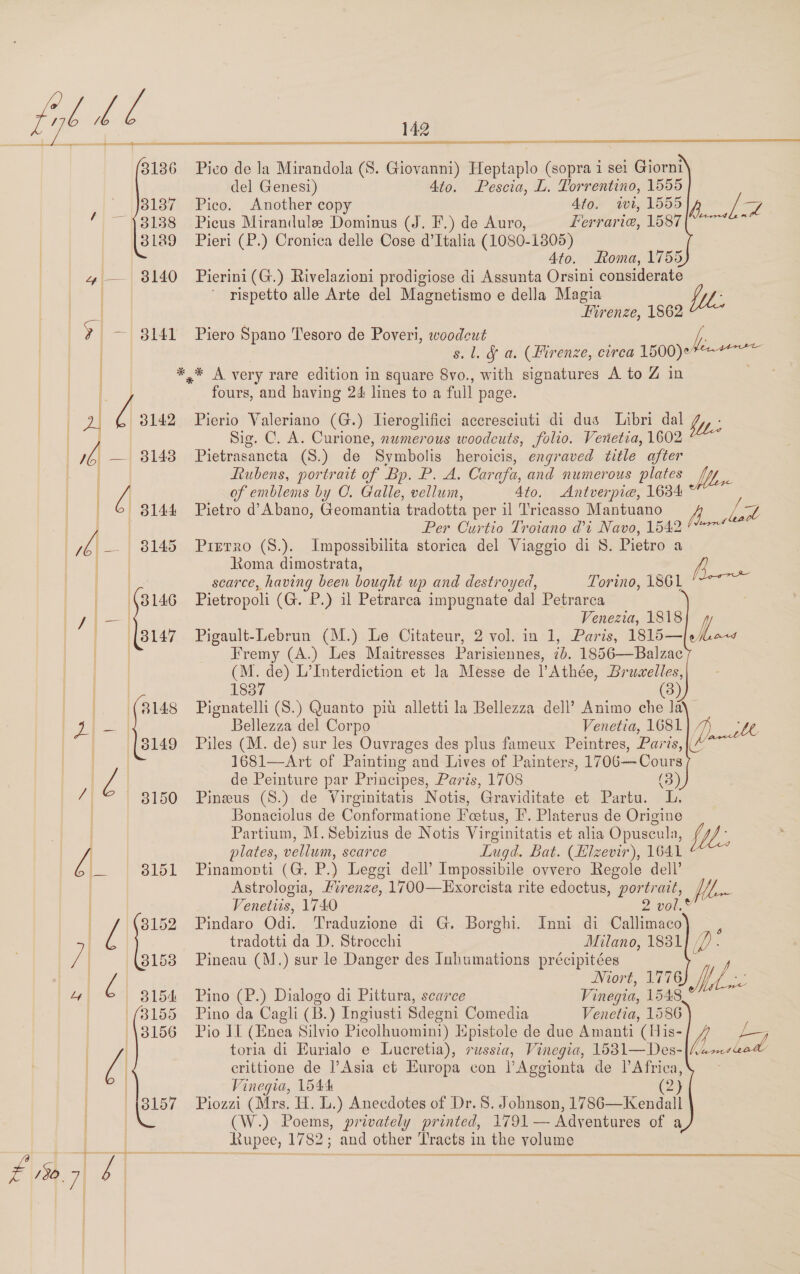 142
3136 Pico de la Mirandola (S. Giovanni) Heptaplo (sopra i sei Giorni
del Genesi) 4to. Pescia, L. Torrentino, 1555
3137 Pico. Another copy 4to. ib, 1555
3138 Picus Mirandulæ Dominus (J. F.) de Auro, Ferrariæ, 1587
3139 Pieri (P.) Cronica delle Cose d'Italia (1080-1305)
4to. Roma, 1755
4 — 3140 Pierini (G.) Rivelazioni prodigiose di Assunta Orsini considerate
rispetto alle Arte del Magnetismo e della Magia
Firenze, 1862
3141 Piero Spano Tesoro de Poveri, woodcut
s. l. & a. (Firenze, circa 1500)
*** A very rare edition in square 8vo., with signatures A to Z in
fours, and having 24 lines to a full page.
2 6 3142 Pierio Valeriano (G.) Ieroglifici accresciuti di dus Libri dal
Sig. C. A. Curione, numerous woodcuts, folio. Venetia, 1602
16 — 3143 Pietrasancta (S.) de Symbolis heroicis, engraved title after
Rubens, portrait of Bp. P. A. Carafa, and numerous plates
of emblems by C. Galle, vellum, 4to. Antverpiæ, 1634
6 3144 Pietro d'Abano, Geomantia tradotta per il Tricasso Mantuano
Per Curtio Troiano d'i Navo, 1542
16 — 3145 Pietro (S.). Impossibilita storica del Viaggio di S. Pietro a
Roma dimostrata,
scarce, having been bought up and destroyed, Torino, 1861
3146 Pietropoli (G. P.) il Petrarca impugnate dal Petrarca
Venezia, 1818
3147 Pigault-Lebrun (M.) Le Citateur, 2 vol. in 1, Paris, 1815—
Fremy (A.) Les Maitresses Parisiennes, ib. 1856—Balzac
(M. de) L'Interdiction et la Messe de l'Athée, Bruxelles,
1837 (3)
3148 Pignatelli (S.) Quanto più alletti la Bellezza dell' Animo che la
Bellezza del Corpo Venetia, 1681
3149 Piles (M. de) sur les Ouvrages des plus fameux Peintres, Paris,
1681—Art of Painting and Lives of Painters, 1706—Cours
de Peinture par Principes, Paris, 1708 (3)
3150 Pineus (S.) de Virginitatis Notis, Graviditate et Partu. L.
Bonaciolus de Conformatione Fœtus, F. Platerus de Origine
Partium, M. Sebizius de Notis Virginitatis et alia Opuscula,
plates, vellum, scarce Lugd. Bat. (Elzevir), 1641
6 — 3151 Pinamonti (G. P.) Leggi dell' Impossibile ovvero Regole dell'
Astrologia, Firenze, 1700—Exorcista rite edoctus, portrait,
Venetiis, 1740 2 vol.
3152 Pindaro Odi. Traduzione di G. Borghi. Inni di Callimaco
tradotti da D. Strocchi Milano, 1831
3153 Pineau (M.) sur le Danger des Inhumations précipitées
Niort, 1776
4 6 3154 Pino (P.) Dialogo di Pittura, scarce Vinegia, 1548
3155 Pino da Cagli (B.) Ingiusti Sdegni Comedia Venetia, 1586
3156 Pio II (Enea Silvio Picolhuomini) Epistole de due Amanti (His-
toria di Eurialo e Lucretia), russia, Vinegia, 1531—Des-
crittione de l'Asia et Europa con l'Aggionta de l'Africa,
Vinegia, 1544 (2)
3157 Piozzi (Mrs. H. L.) Anecdotes of Dr. S. Johnson, 1786—Kendall
(W.) Poems, privately printed, 1791 — Adventures of a
Rupee, 1782; and other Tracts in the volume